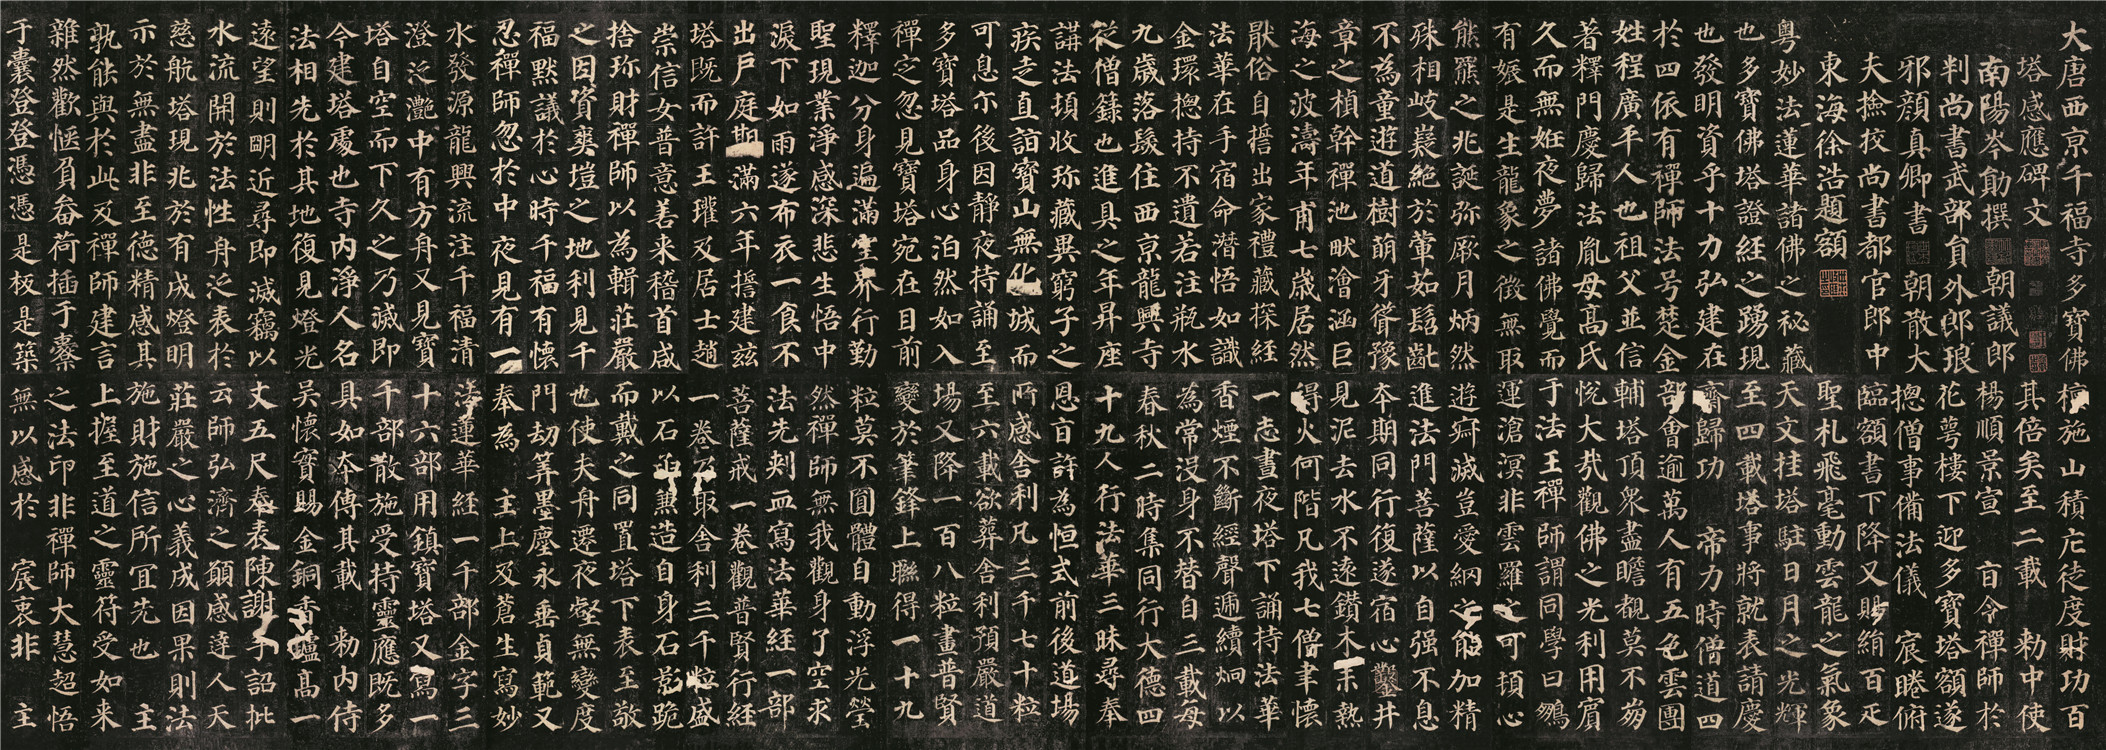 大唐西京千福寺多寶佛
塔感應碑文
南陽岑勛撰 朝議郎
判尚書武部員外郎琅
邪顏真卿書 朝散大
夫撿挍尚書都官郎中
東海徐浩題額
粵妙法蓮華諸佛之秘藏
也多寶佛塔證經之踴現
也發明資乎十力弘建在
於四依有禪師法号楚金
姓程廣平人也祖父並信
著釋門慶歸法胤母高氏
久而無妊夜夢諸佛覺而
有娠是生龍象之徵無取
熊羆之兆誕弥厥月炳然
殊相岐嶷絕於葷茹髫齔
不為童遊道樹萌牙聳豫
章之楨幹禪池畎澮涵巨
海之波濤年甫七歲居然
猒俗自誓出家禮藏探經
法華在手宿命潛悟如識
金環揔持不遺若注瓶水
九歲落髮住西京龍興寺
從僧籙也進具之年昇座
講法頓收珎藏異窮子之
疾走直詣寶山無化城而
可息尒後因靜夜持誦至
多寶塔品身心泊然如入
禪定忽見寶塔宛在目前
釋迦分身遍滿空界行勤
聖現業淨感深悲生悟中
淚下如雨遂布衣一食不
出戶庭期滿六年誓建茲
塔既而許王瓘及居士趙
崇信女普意善来稽首咸
捨珎財禪師以為輯莊嚴
之因資爽塏之地利見千
福默議於心時千福有懷
忍禪師忽於中夜見有一
水發源龍興流注千福清
澄泛灩中有方舟又見寶
塔自空而下久之乃滅即
今建塔處也寺内淨人名
法相先於其地復見燈光
遠望則明近尋即滅竊以
水流開於法性舟泛表於
慈航塔現兆於有成燈明
示於無盡非至德精感其
孰能與於此及禪師建言
雜然歡愜負畚荷插于橐
于囊登登憑憑是板是築
檀施山積庀徒度財功百
其倍矣至二載 敕中使
楊順景宣 旨令禪師於
花萼樓下迎多寶塔額遂
揔僧事備法儀 宸睠俯
臨額書下降又賜絹百疋
聖札飛毫動雲龍之氣象
天文挂塔駐日月之光輝
至四載塔事將就表請慶
齋歸功 帝力時僧道四
部會逾萬人有五色雲團
輔塔頂眾盡瞻覩莫不崩
悅大哉觀佛之光利用賓
于法王禪師謂同學曰鵬
運滄溟非雲羅之可頓心
遊寂滅豈愛網之能加精
進法門菩薩以自强不息
本期同行復遂宿心鑿井
見泥去水不遠鑽木未熱
得火何階凡我七僧聿懷
一志晝夜塔下誦持法華
香煙不斷經聲遞續炯以
為常沒身不替自三載每
春秋二時集同行大德四
十九人行法華三昧尋奉
恩旨許為恒式前後道場
所感舍利凡三千七十粒
至六載欲葬舍利預嚴道
場又降一百八粒畫普賢
變於筆鋒上聯得一十九
粒莫不圓體自動浮光瑩
然禪師無我觀身了空求
法先刺血寫法華経一部
菩薩戒一卷觀普賢行経
一卷乃取舍利三千粒盛
以石函兼造自身石影跪
而戴之同置塔下表至敬
也使夫舟遷夜壑無變度
門劫筭墨塵永垂貞範又
奉為 主上及蒼生寫妙
法蓮華経一千部金字三
十六部用鎮寶塔又寫一
千部散施受持靈應既多
具如本傳其載 敕内侍
吳懷實賜金銅香鑪高一
丈五尺奉表陳謝手詔批
云師弘濟之願感達人天
莊嚴之心義成因果則法
施財施信所宜先也 主
上握至道之靈符受如来
之法印非禪師大慧超悟
無以感於 宸衷非 主